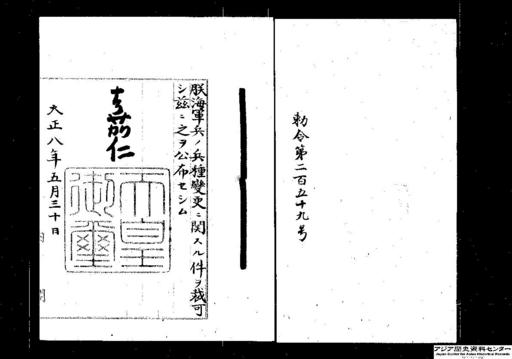 勅令第二百五十九号
朕海軍兵ノ兵種變更ニ関スル件ヲ裁可
シ茲ニ之ヲ公布セシム
嘉仁
天皇
御璽
大正八年五月三十日
アジア歴史資料センター
Japan Center for Asian Historical Records